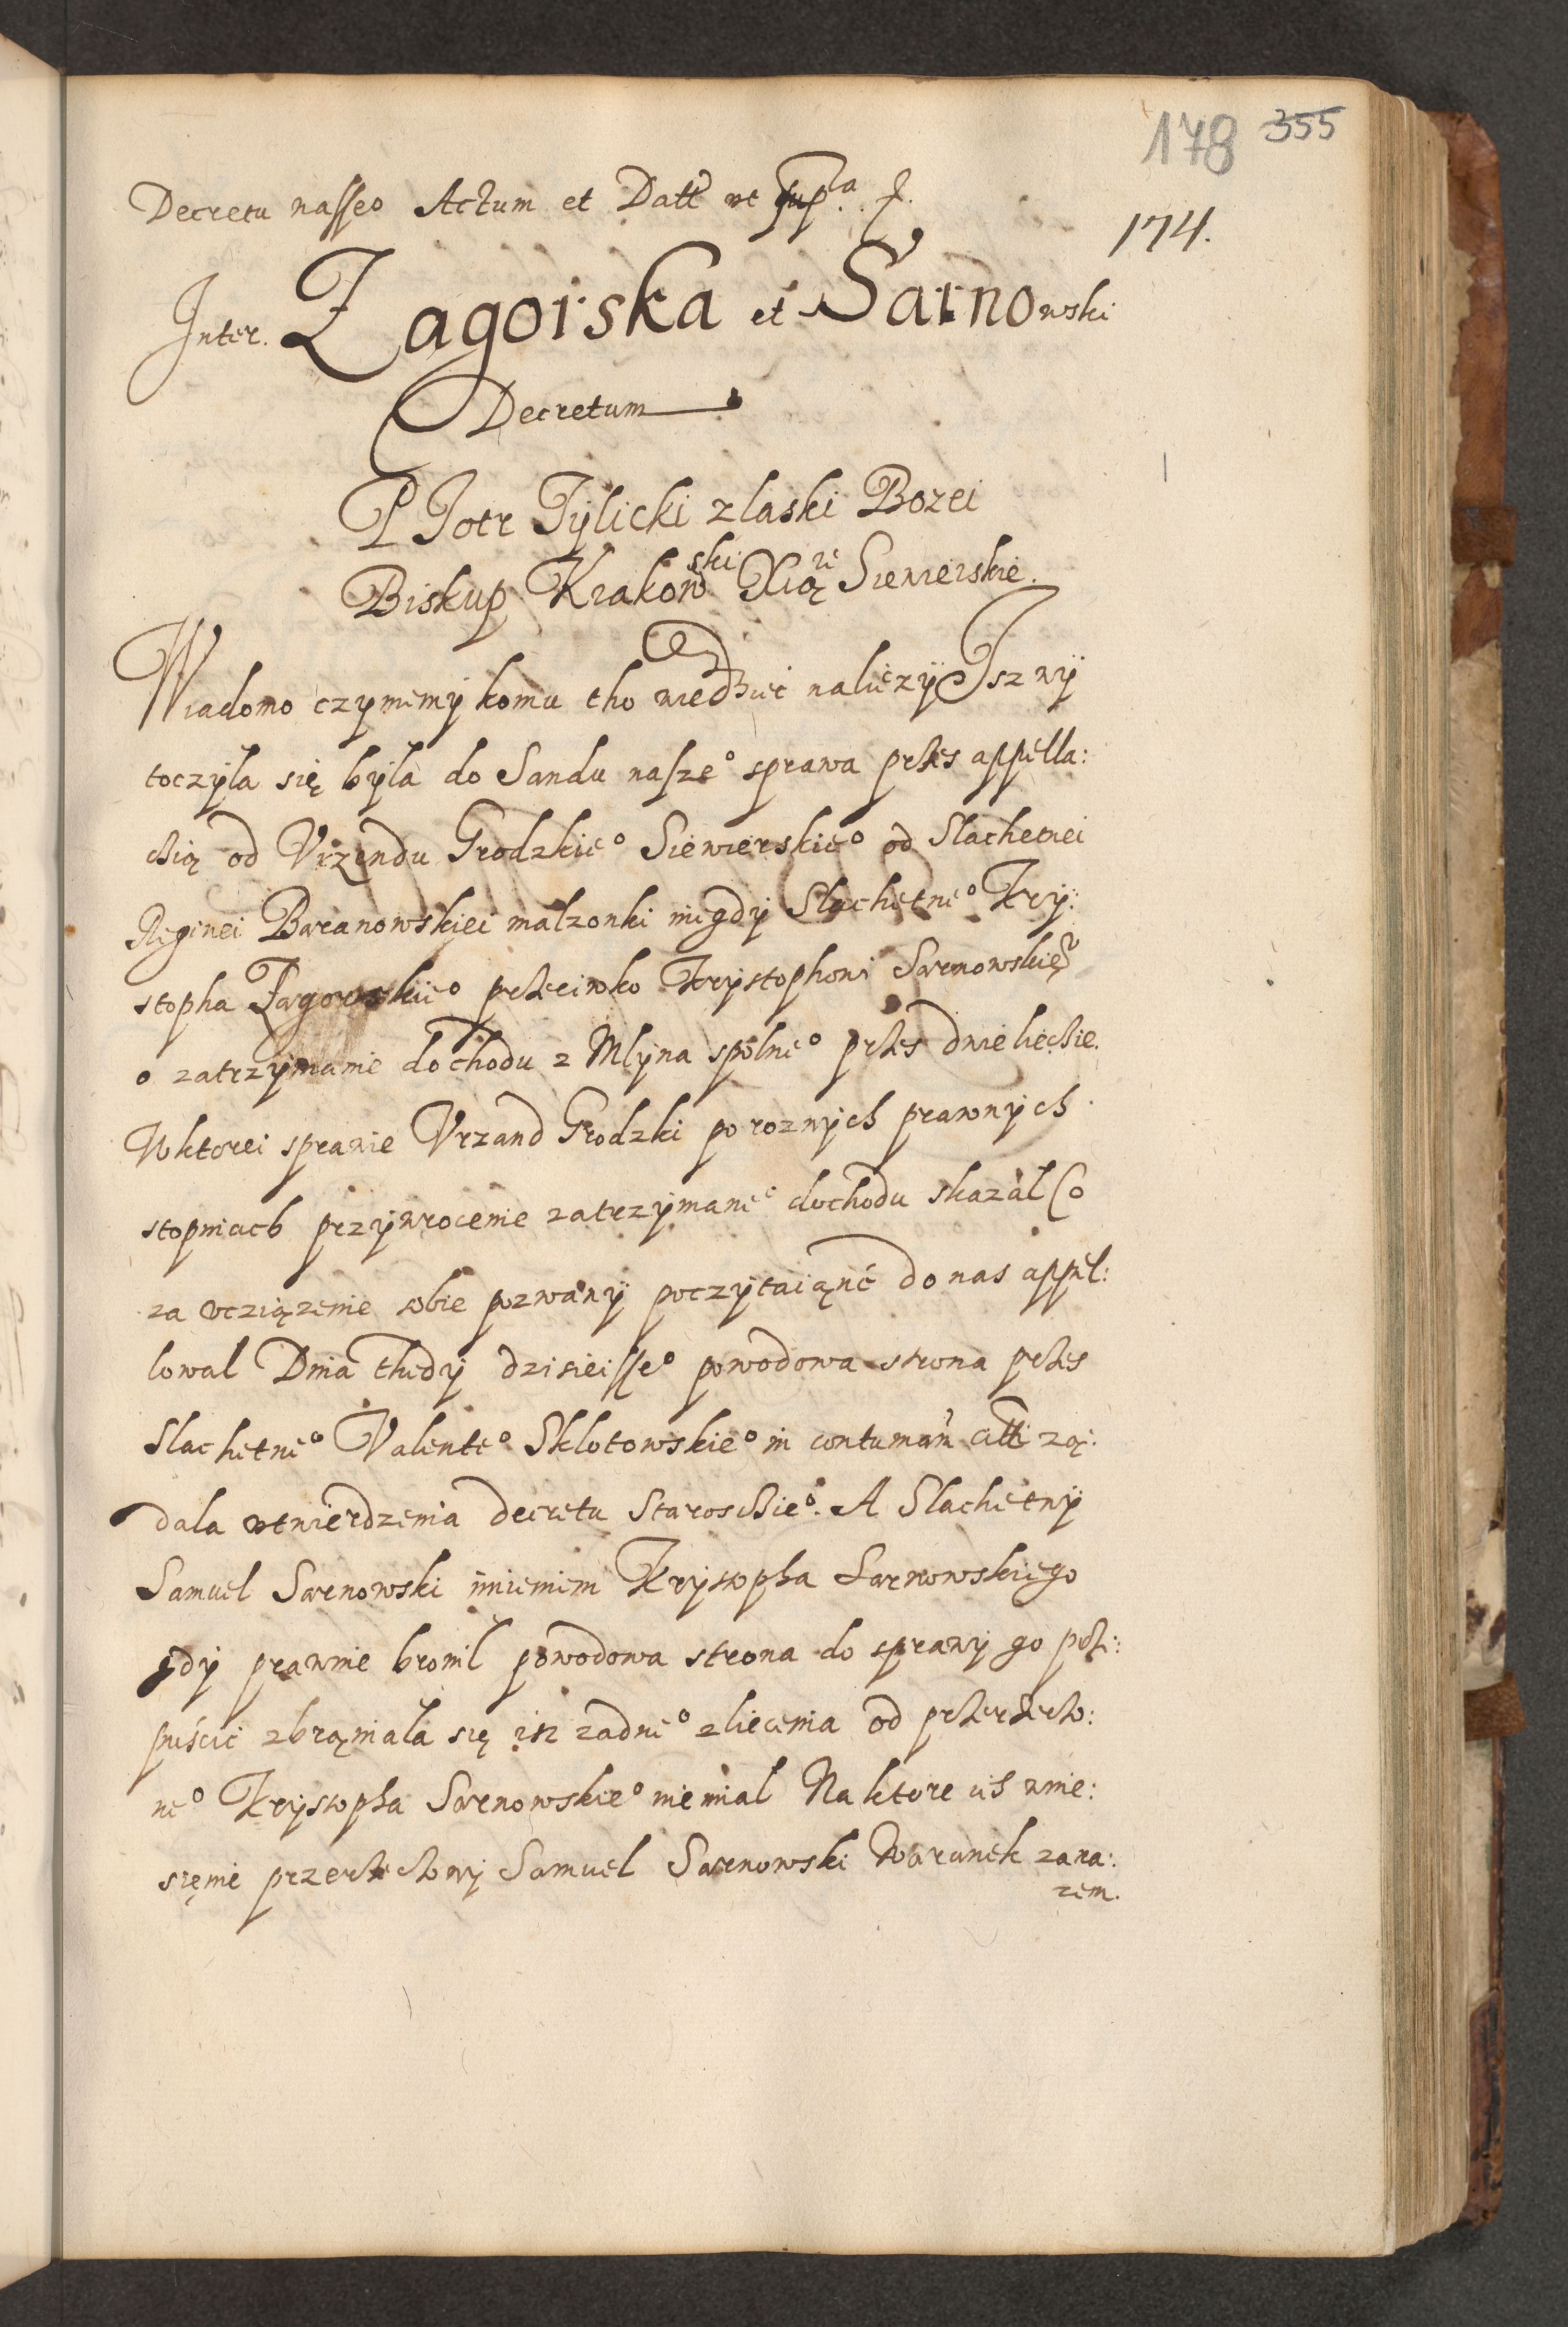 178 355
Decretu nasseo Actum et Datt ut supra
174.
Inter. Zagorska et Sarnowski
Decretum
PJotr Tylicki z laski Bozei
Biskup Krakowski Xiąże Siewierskie.
Wiadomo czyniemy komu tho wiedziec nalieży Isz wy
toczyla się byla do Sandu nasze° sprawa przes appella:
cią od Vrzendu Grodzkie° Siewierskie° od Slachetnei
Reginei Baranowskiei malzonki niegdy Slachetne° Kry:
stopha Zagorskie° przeciwko Krystophowi Sarnowskie°
o zatrzymanie dochodu z Mlyna spolne° przes dwie liecie.
W ktorei sprawie Vrzand Grodzki po roznych prawnych
stopniach przywrocenie zatrzymane° dochodu skazal Co
za vcziązenie sobie pozwany poczytaiąnc do nas appel:
lowal Dnia thedy dzisieisse° powodowa strona przes
Slachetne° Valente° Sklotowskie° in contumam zą:
dala vtwierdzenia decretu Staroscie°. A Slachetny
Samuel Sarnowski imieniem Krystopha Sarnowskiego
gdy prawnie bronil powodowa strona do sprawy go prz:
puścic zbrąniala się isz zadne° zliecenia od przerzeczo:
ne° Krystopha Sarnowskie° nie mial Na ktore ich wnie:
sięnie przerzeczony Samuel Sarnowski Warunek zara:
zem.